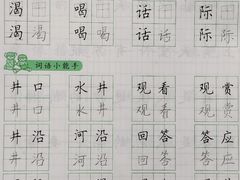 渴 喝 话 际
渴 喝 话 际
词语小能手
井口 水井 观看 观赏
井口 水井 观看 观赏
井沿 河沿 回答 答应
井沿 河沿 回答 答应